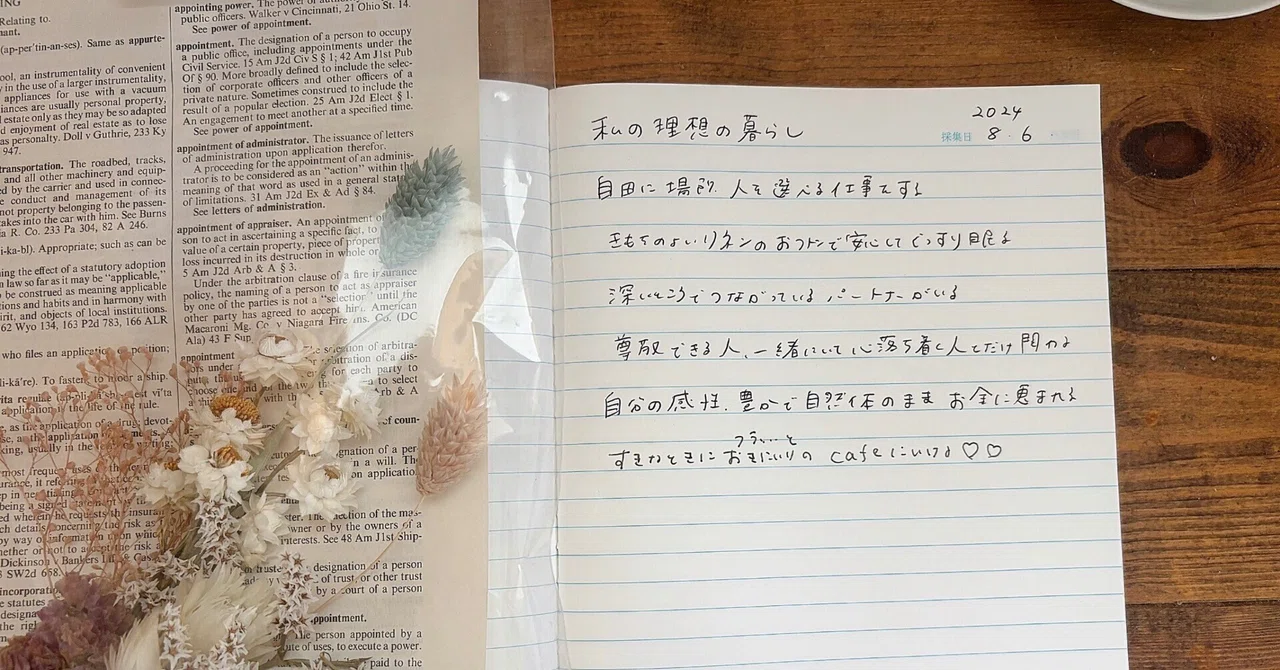 NG
Relating to.
nant.
(ap-per′tin-an-ses). Same as appurte-
ool, an instrumentality of convenient
y in the use of a larger instrumentality,
appliances for use with a vacuum
liances are usually personal property,
l estate only as they may be so adapted
d enjoyment of real estate as to lose
as personality. Doll v Guthrie, 233 Ky
947.
transportation. The roadbed, tracks,
and all other machinery and equip-
ed by the carrier and used in connec-
e conduct and management of its
not property belonging to the passen-
takes into the car with him. See Burns
a R. Co. 233 Pa 304, 82 A 246.
i-ka-bl). Appropriate; such as can be
ing the effect of a statutory adoption
n law so far as it may be “applicable,”
be construed as meaning applicable
tions and habits and in harmony with
irit, and objects of local institutions.
62 Wyo 134, 163 P2d 783, 166 ALR
who files an application, position;
li-kā′re). To fasten to moor a ship.
application, the life of the rule.
appointing power. The power of
public officers. Walker v Cincinnati, 21 Ohio St. 14.
See power of appointment.
appointment. The designation of a person to occupy
a public office, including appointments under the
Civil Service. 15 Am J2d Civ S § 1; 42 Am J1st Pub
Of § 90. More broadly defined to include the selec-
tion of corporate officers and other officers of a
private nature. Sometimes construed to include the
result of a popular election. 25 Am J2d Elect § 1.
An engagement to meet another at a specified time.
See power of appointment.
appointment of administrator. The issuance of letters
of administration upon application therefor.
A proceeding for the appointment of an adminis-
trator is to be considered as an “action” within the
meaning of that word as used in a general statute
of limitations. 31 Am J2d Ex & Ad § 84.
See letters of administration.
appointment of appraiser. An appointment of
son to act in ascertaining a specific fact, to
value of a certain property, piece of property
loss incurred in its destruction in whole or
5 Am J2d Arb & A § 3.
Under the arbitration clause of a fire insurance
policy, the naming of a person to act as appraiser
by one of the parties is not a “selection” until the
other party has agreed to accept him. American
Macaroni Mg. Co v Niagara Fire Ins. Co. (DC
Ala) 43 F Sup
appointment
The selection of arbitra-
for each party to
to select
Arb & A
of coun-
ignation of a per-
in a will. The
on application
ster. The election of the mas-
owner or by the owners of a
interests. See 48 Am J1st Ship-
designation of a person
of trust, or other trust
by a court of a person
appointment.
The person appointed by a
ute of uses, to execute a power.
paid to the
2024
私の理想の暮らし
採集日 8 6
自由に場所、人を選べる仕事をする
きもちのよいリネンのおフトンで安心してぐっすり眠る
深いところでつながっているパートナーがいる
尊敬できる人、一緒にいて心落ち着く人とだけ関わる
自分の感性、豊かで自然体のままお金に恵まれる
フラ〜っと
すきなときにおきにいりのcafeにいける♡♡